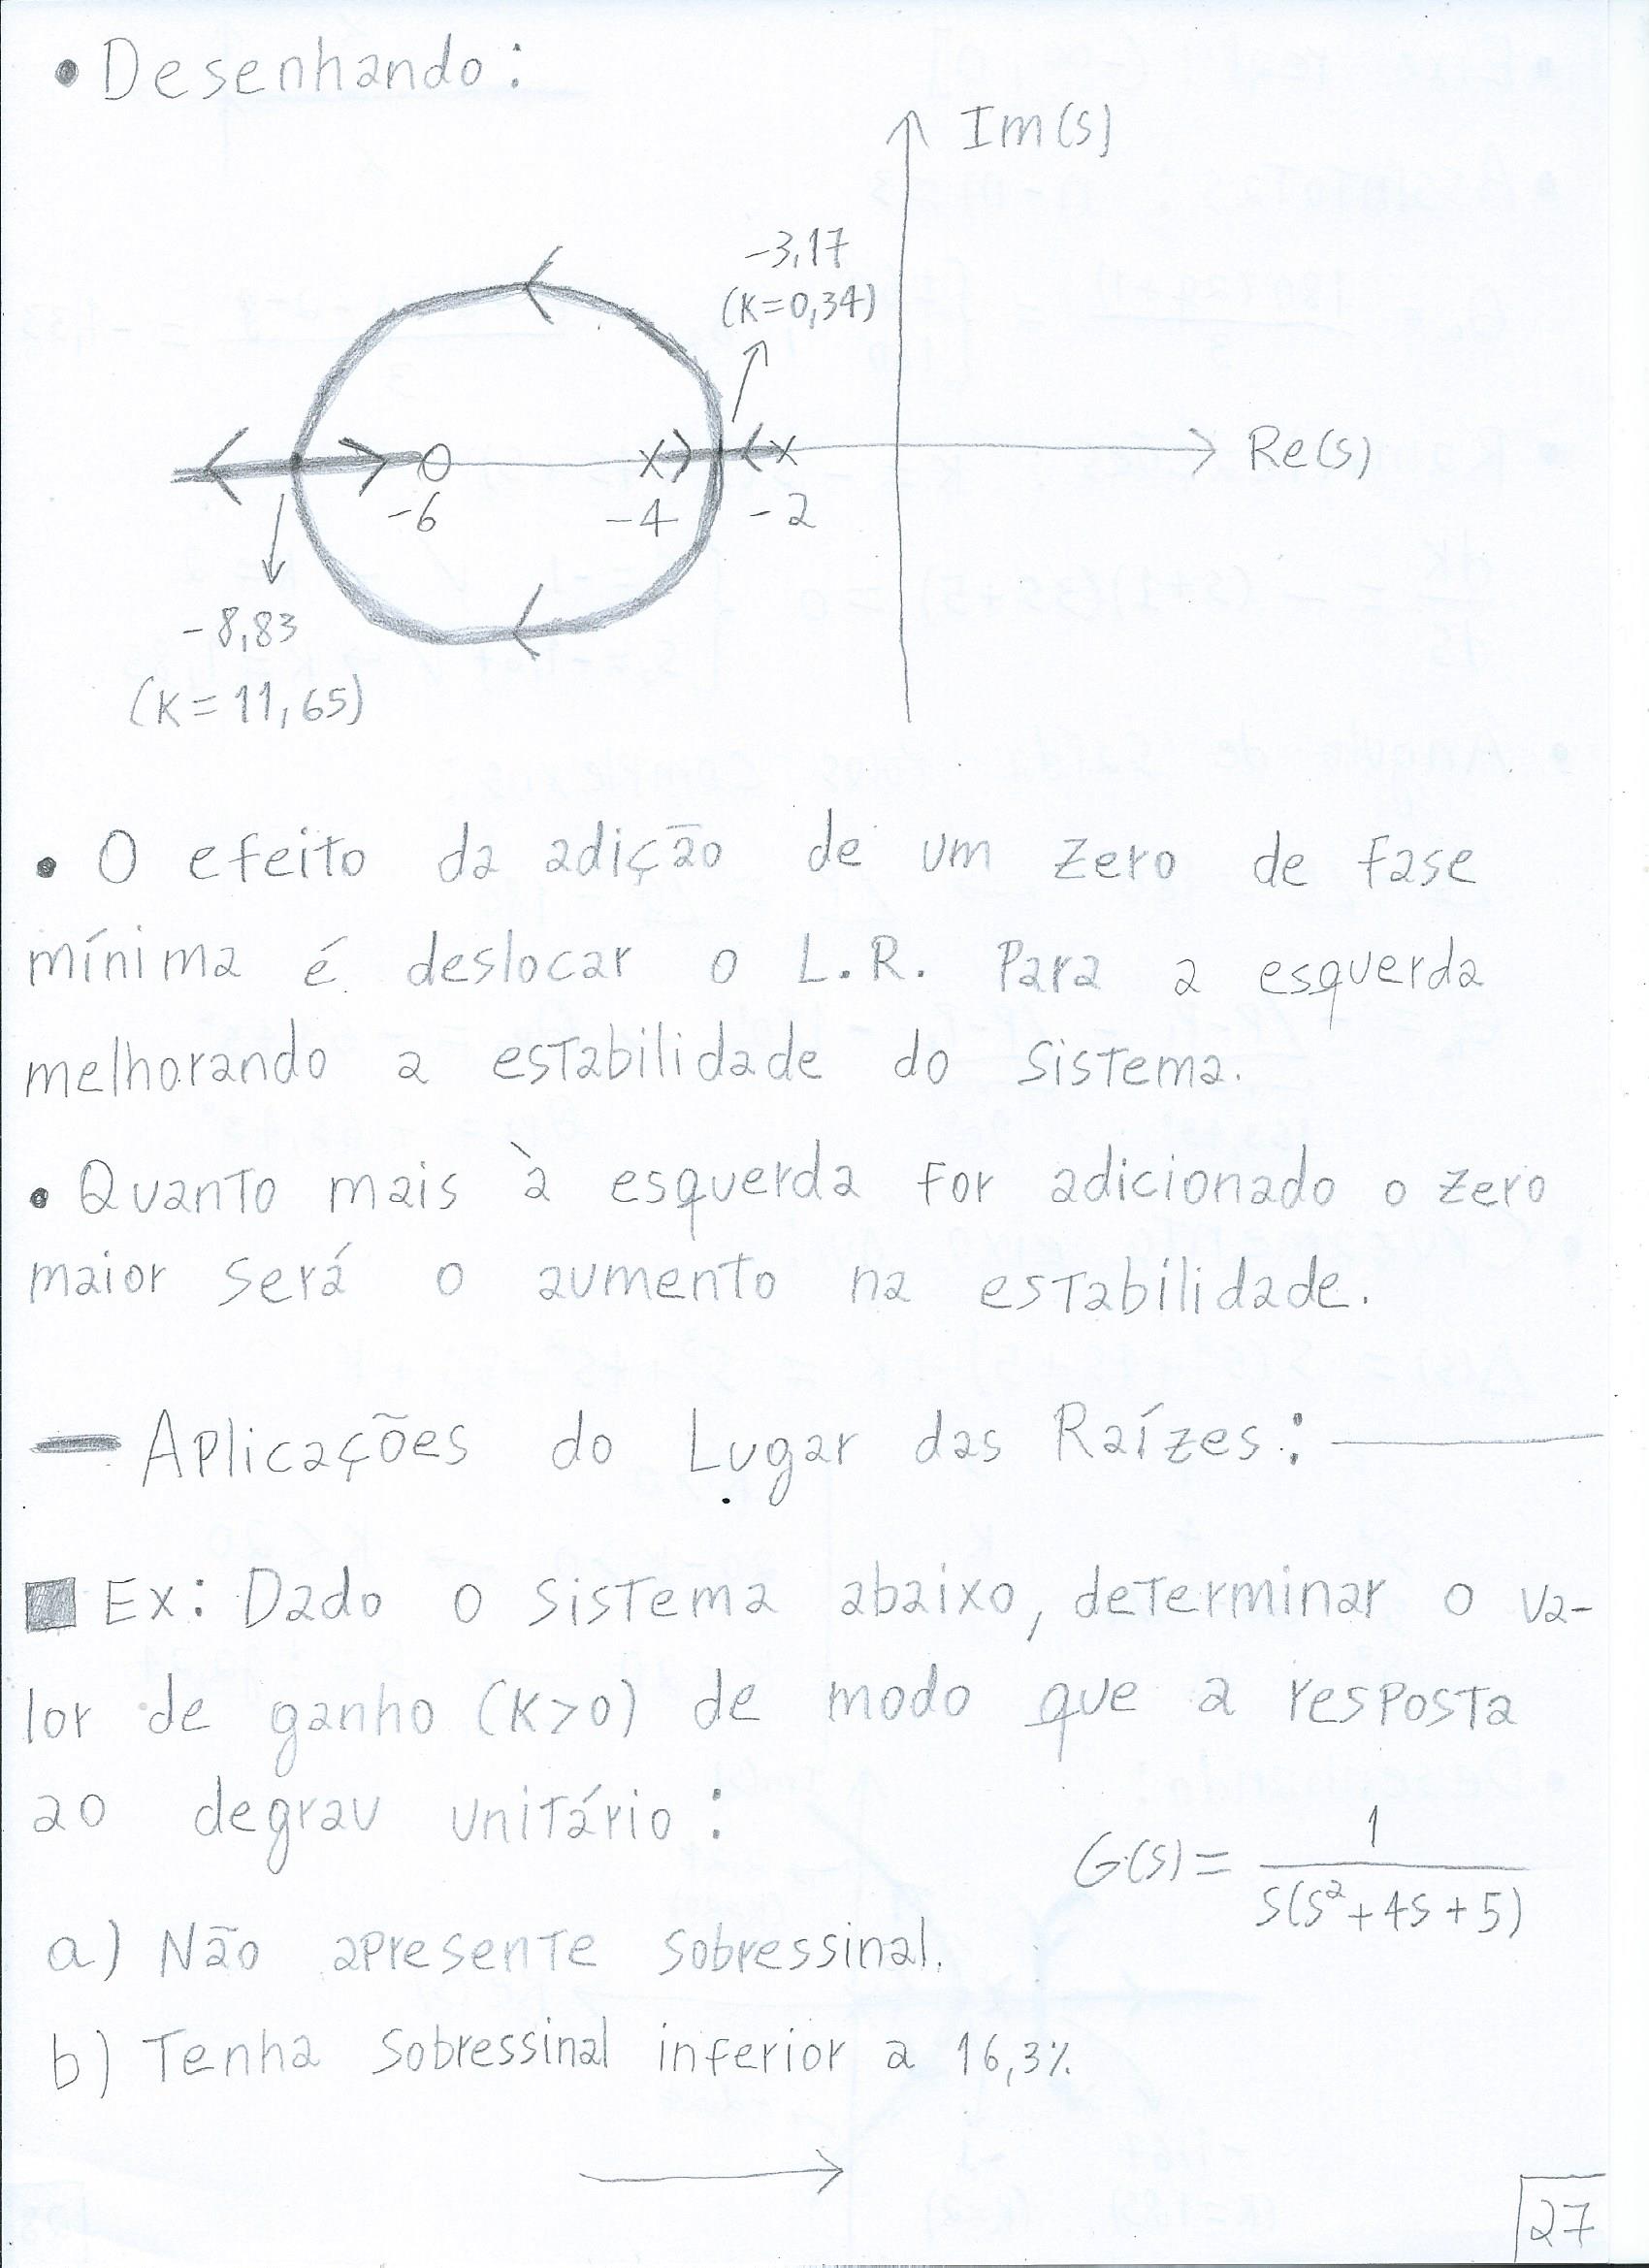 • Desenhando:
Im(s)
-3,17
(K=0,34)
Re(s)
-6 -4 -2
-8,83
(K=11,65)
• O efeito da adição de um zero de fase
mínima é deslocar o L.R. Para a esquerda
melhorando a estabilidade do sistema.
• Quanto mais à esquerda for adicionado o zero
maior será o aumento na estabilidade.
— Aplicações do Lugar das Raízes:
Ex: Dado o sistema abaixo, determinar o va-
lor de ganho (K>0) de modo que a resposta
ao degrau unitário:
G(s) = 1 / s(s²+4s+5)
a) Não apresente sobressinal.
b) Tenha sobressinal inferior a 16,3%
27